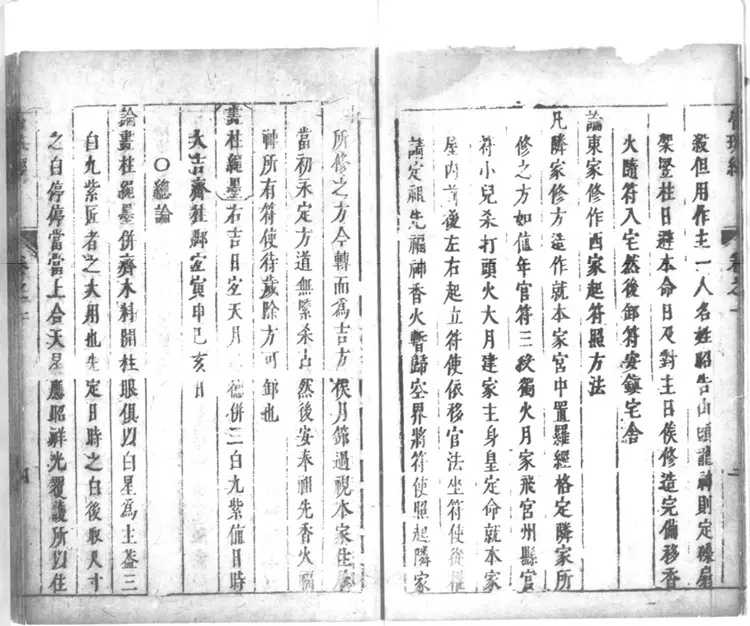 殺但用作主一人名姓昭告山頭龍神則定磉扇
架竪柱日避本命日及對主日俟修造完備移香
火隨符入宅然後卸符安鎮宅舍
論東家修作西家起符照方法
凡隣家修方造作就本家宮中置羅經格定隣家所
修之方如值年官符三殺獨火月家飛宮州縣官
符小兒杀打頭火大月建家主身皇定命就本家
屋内前後左右起立符使依移官法坐符使從權
請定祖先福神香火暫歸空界將符使照起隣家
卷之一
二
所修之方令轉而為吉方俟月節過視本家住居
當初永定方道無緊杀占然後安奉祖先香火福
神所有符使待歲除方可卸也
畫柱繩墨右吉日宜天月二德併三白九紫值日時
大吉齊柱脚宜寅申巳亥日
○總論
論畫柱繩墨併齊木料開柱眼俱以白星爲主葢三
白九紫匠者之大用也先定日時之白後取尺寸
之白停停當當上合天星應昭祥光覆護所以住